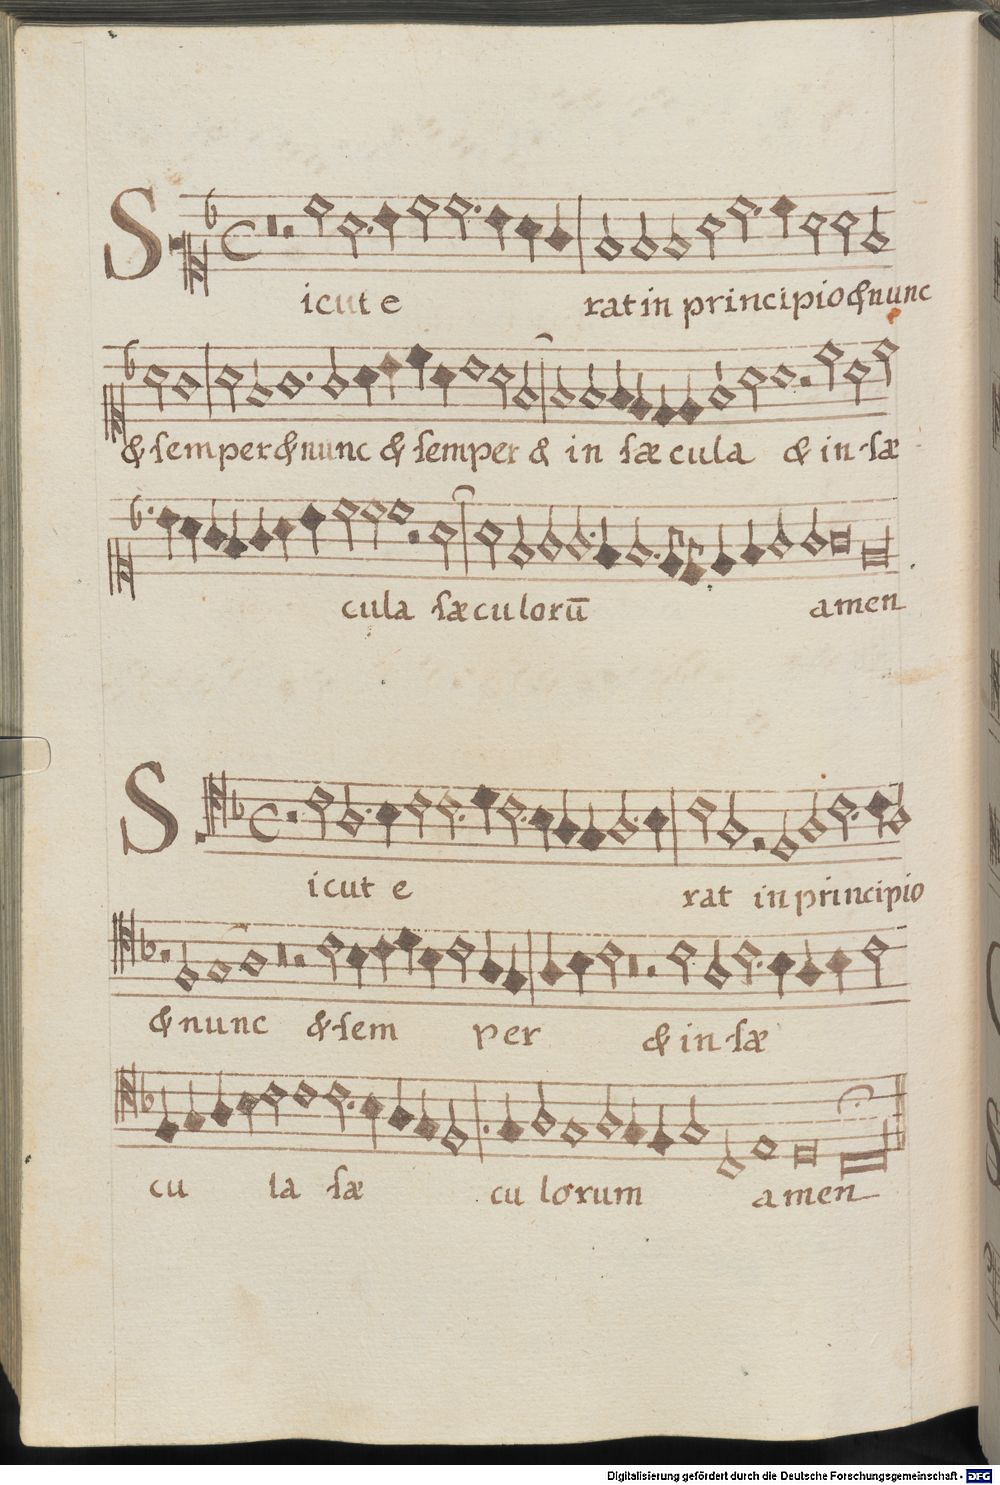 Sicut e rat in principio & nunc
& semper & nunc & semper & in sæcula & in sæ
cula sæculorū amen
Sicut e rat in principio
& nunc & sem per & in sæ
cu la sæ culorum amen
Digitalisierung gefördert durch die Deutsche Forschungsgemeinschaft - DFG